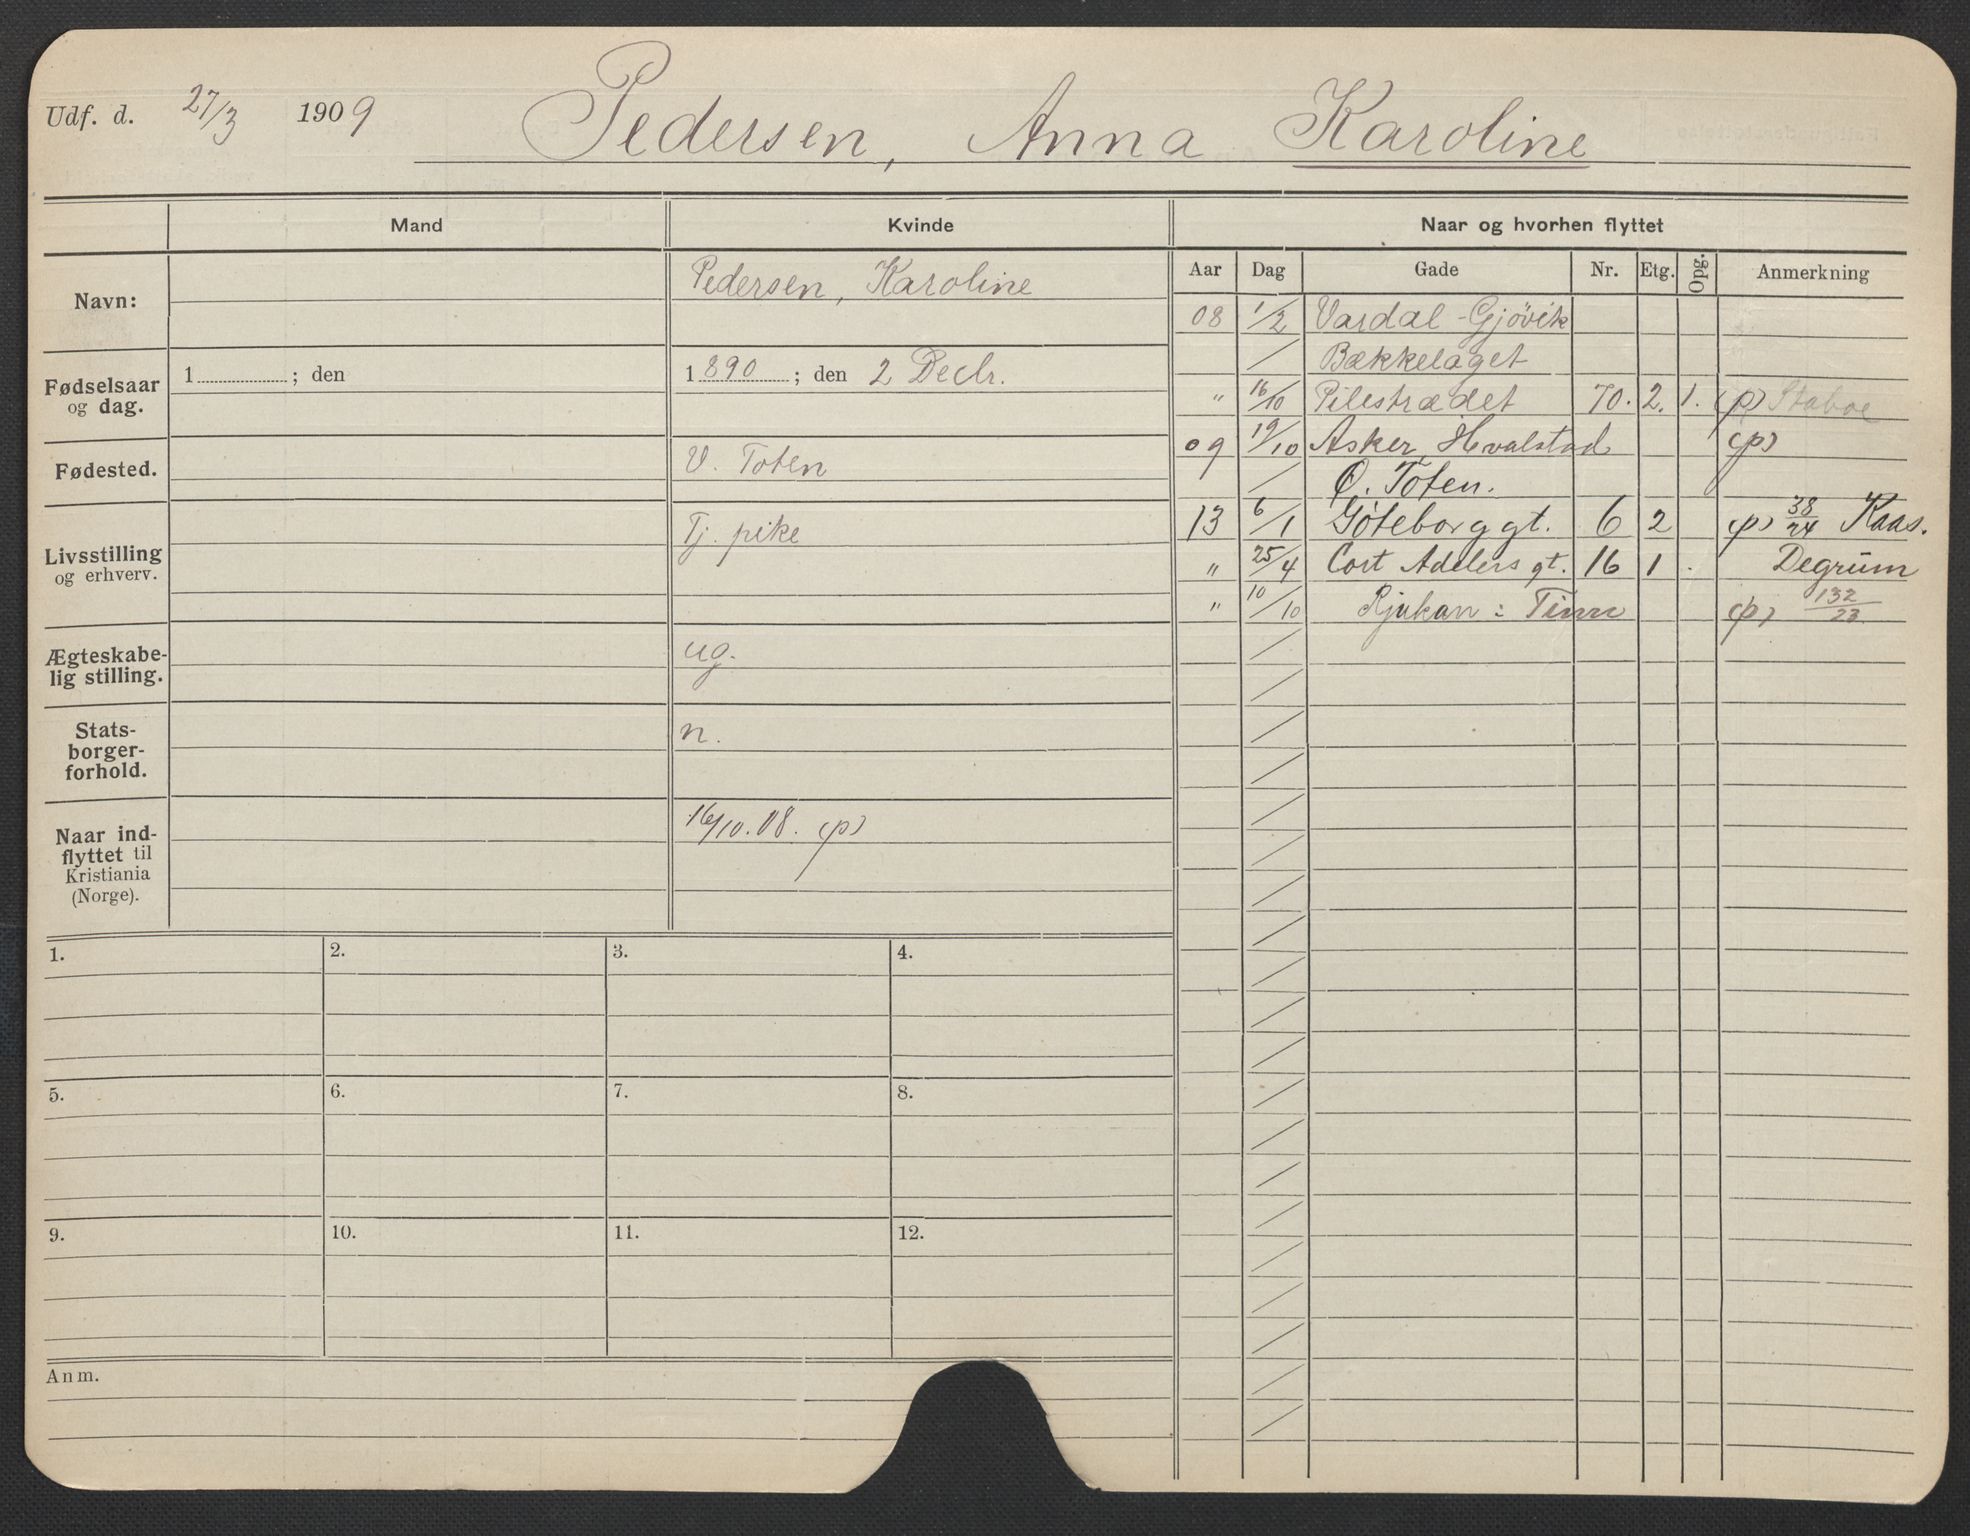 Udf. d. 27/3 1909 Pedersen, Anna Karoline
Mand Kvinde Naar og hvorhen flyttet
Aar Dag Gade Nr. Etg. Opg. Anmerkning
Navn: Pedersen, Karoline
Fødselsaar og dag. 1 ; den 1890 ; den 2 Decbr.
Fødested. V. Toten
Livsstilling og erhverv. Tj. pike
Ægteskabe-
lig stilling. ug.
Stats-
borger-
forhold. n.
Naar ind-
flyttet til
Kristiania
(Norge). 16/10.08. (p)
08 1/2 Vardal - Gjövik
/ Bækkelaget
" 16/10 Pilestrædet 70. 2. 1. (p) Staboe
09 19/10 Asker, Hvalstad (p)
/ Ø. Toten.
13 6/1 Göteborggt. 6 2 (p) 38/24 Kaas.
" 25/4 Cort Adelers gt. 16 1 . Degrüm
" 10/10 Rjukan : Tinn (p) 132/23
1. 2. 3. 4.
5. 6. 7. 8.
9. 10. 11. 12.
Anm.